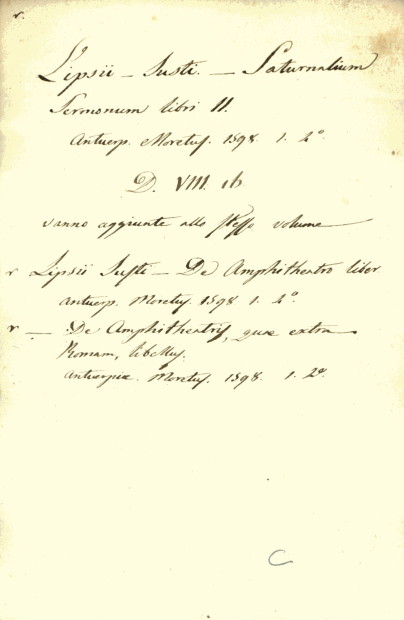 r.
Lipsii – Justi. – Saturnalium
Sermonum libri II.
Antuerp. Moretus. 1598 1. 2°
D. VIII. 16
vanno aggiunte allo stesso volume
r Lipsii Justi – De Amphitheatro liber
antuerp. Moretus. 1598 1. 2°
r – De Amphitheatris, quæ extra
Romam, libellus.
Antuerpiæ. Moretus. 1598. 1. 2°.
C